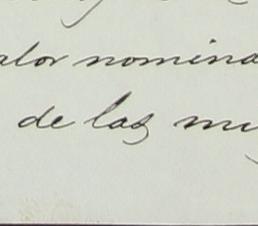 alor nomina
de las mu